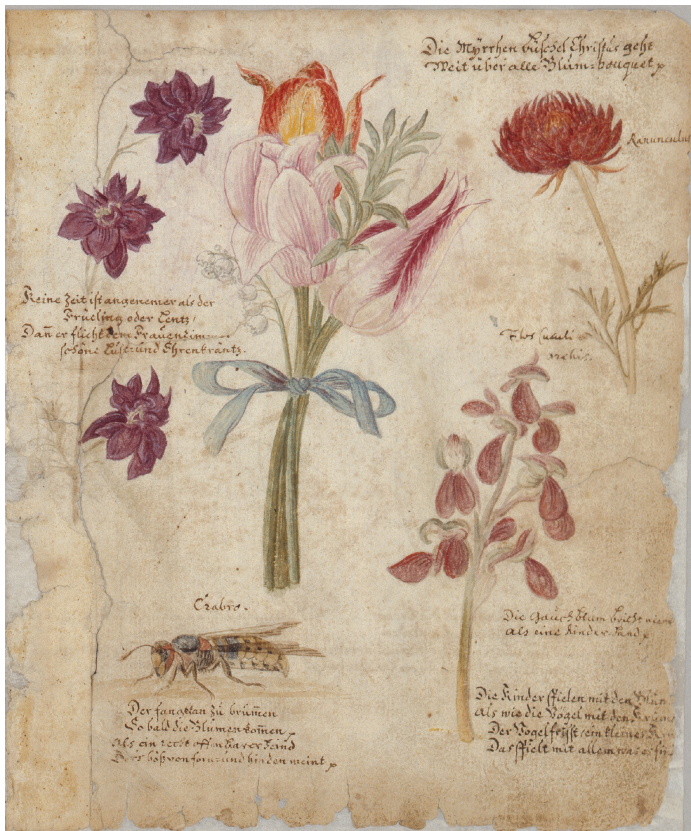 Die Myrrhen büschel Christus geht
Weit über alle Blum-bouquet
Ranunculus
Keine Zeit ist angenemer als der
Früeling oder Lentz,
Dañ er flicht dem Frauenzim̄
schöne Lust und Ehrenkräntz.
Flos Cuculi
orchis
Crabro.
Die Gauchblum bricht
Als eine Kinder hand
Der fangt an zu brum̄en
So bald die Blumen kom̄en
Als ein recht offenbarer Feind
Der's böß von forn und hinden meint
Die Kinder spielen mit den
Als wie die Vögel mit den
Der Vogel frißt sein kleines
Das spielt mit allem was er